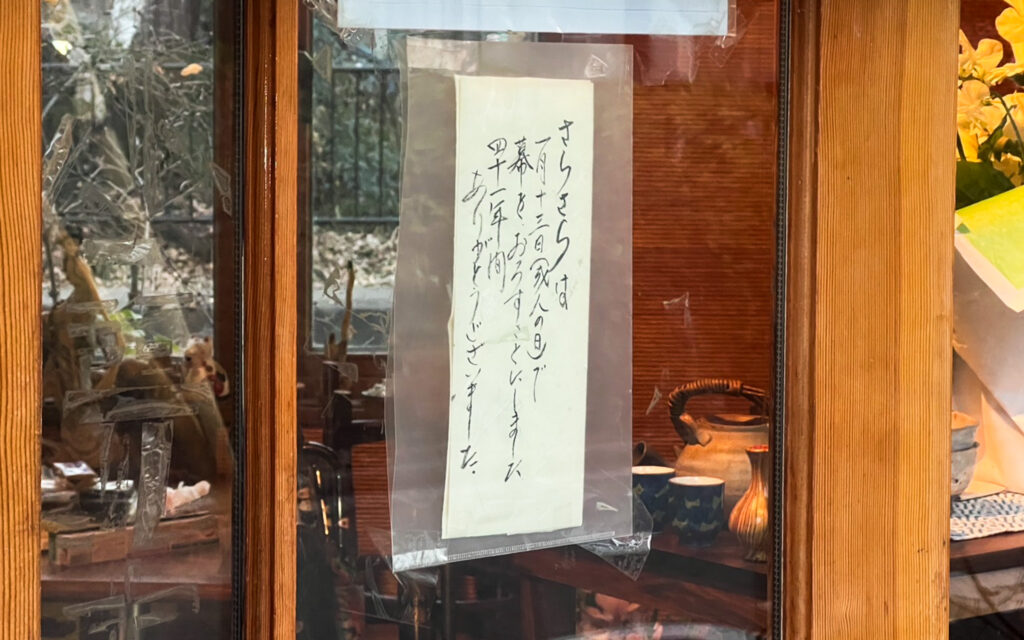 さらさらは
一月十三日(成人の日)で
幕を、おろすことにしました
四十一年間
ありがとうございました。